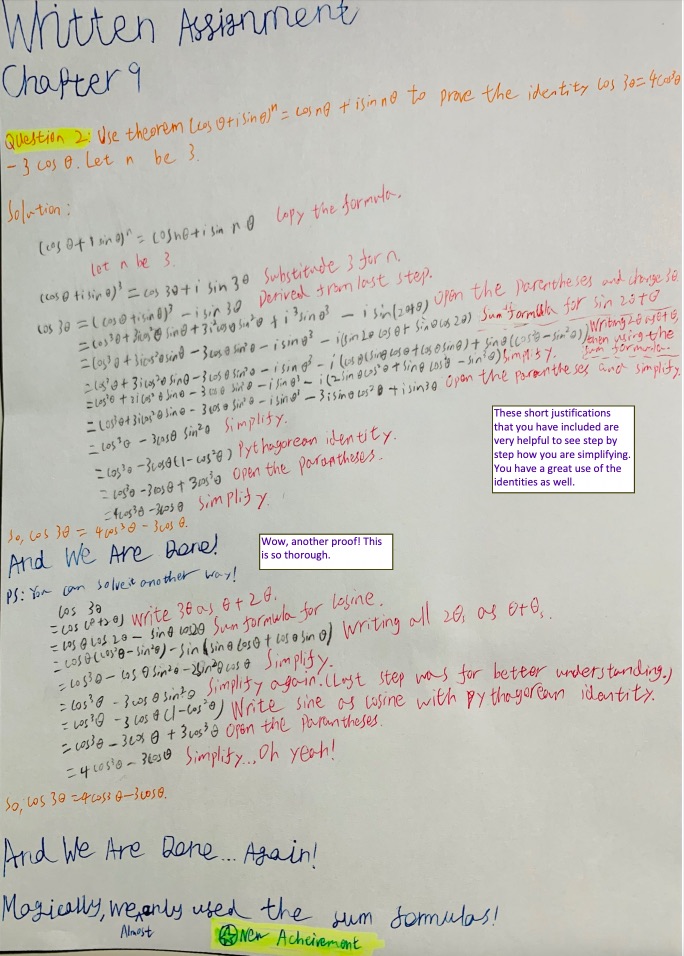 Written Assignment
Chapter 9
Question 2: Use theorem (cos θ+isin θ)ⁿ = cosnθ + isin nθ to prove the identity cos 3θ = 4cos³θ
- 3 cos θ. Let n be 3.
Solution:
(cos θ + i sin θ)ⁿ = cosnθ + i sin n θ Copy the formula.
let n be 3.
(cos θ + i sin θ)³ = cos 3θ + i sin 3θ Substitude 3 for n.
cos 3θ = (cosθ + isinθ)³ - i sin 3θ Derived from last step.
= cos³θ + 3icos²θ sinθ + 3i²cosθ sin²θ + i³sinθ³ - i sin(2θ+θ) Open the parentheses and change 3θ
= cos³θ + 3icos²θsinθ - 3cosθ sin²θ - isinθ³ - i(sin2θ cosθ + sinθcos2θ) Sum formula for sin 2θ+θ
Writing 2θ as θ+θ, then using the sum formula.
Simplify.
Open the parantheses and simplify.
= cos³θ - 3cosθ sin²θ Simplify.
= cos³θ - 3cosθ(1-cos²θ) Pythagorean identity.
= cos³θ - 3cosθ + 3cos³θ Open the parantheses.
= 4cos³θ - 3cosθ Simplify.
These short justifications
that you have included are
very helpful to see step by
step how you are simplifying.
You have a great use of the
identities as well.
So, cos 3θ = 4cos³θ - 3cos θ.
And We Are Done!
Wow, another proof! This
is so thorough.
PS: You can solve it another way!
cos 3θ
= cos (θ+2θ) Write 3θ as θ + 2θ.
= cos θ cos 2θ - sinθ sin2θ Sum formula for cosine.
= cosθ(cos²θ-sin²θ)-sin(sinθ cosθ + cosθ sinθ) Writing all 2θs as θ+θs.
= cos³θ - cosθ sin²θ - 2sin²θcosθ Simplify.
= cos³θ - 3cosθ sin²θ Simplify again. (Last step was for better understanding.)
= cos³θ - 3 cos θ (1-cos²θ) Write sine as cosine with pythagorean identity.
= cos³θ - 3cos θ + 3cos³θ Open the parantheses.
= 4cos³θ - 3cosθ Simplify...Oh yeah!
So, cos 3θ = 4cos3 θ-3cosθ.
And We Are Done... Again!
Magically, we only used the sum formulas!
Almost
A New Acheivement